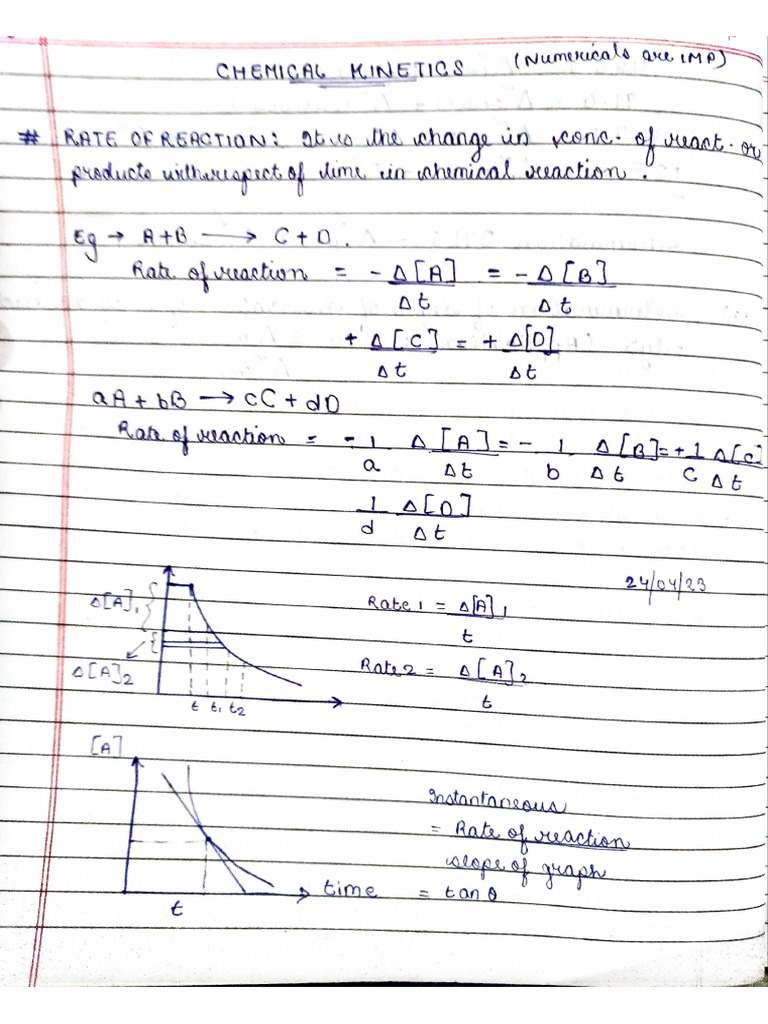 CHEMICAL KINETICS (Numericals are IMP)
# RATE OF REACTION: It is the change in conc. of react. or
products with respect of time in chemical reaction.
Eg → A+B ⟶ C+D.
Rate of reaction = -Δ[A] = -Δ[B]
Δt Δt
+Δ[C] = +Δ[D]
Δt Δt
aA + bB → cC + dD
Rate of reaction = -1 Δ[A] = - 1 Δ[B] = +1 Δ[C]
a Δt b Δt C Δt
1 Δ[D]
d Δt
24/04/23
Δ[A]₁ Rate 1 = Δ[A]₁
t
Δ[A]₂ Rate 2 = Δ[A]₂
t
t t₁ t₂
[A]
Instantaneous
= Rate of reaction
slope of graph
time = tan θ
t